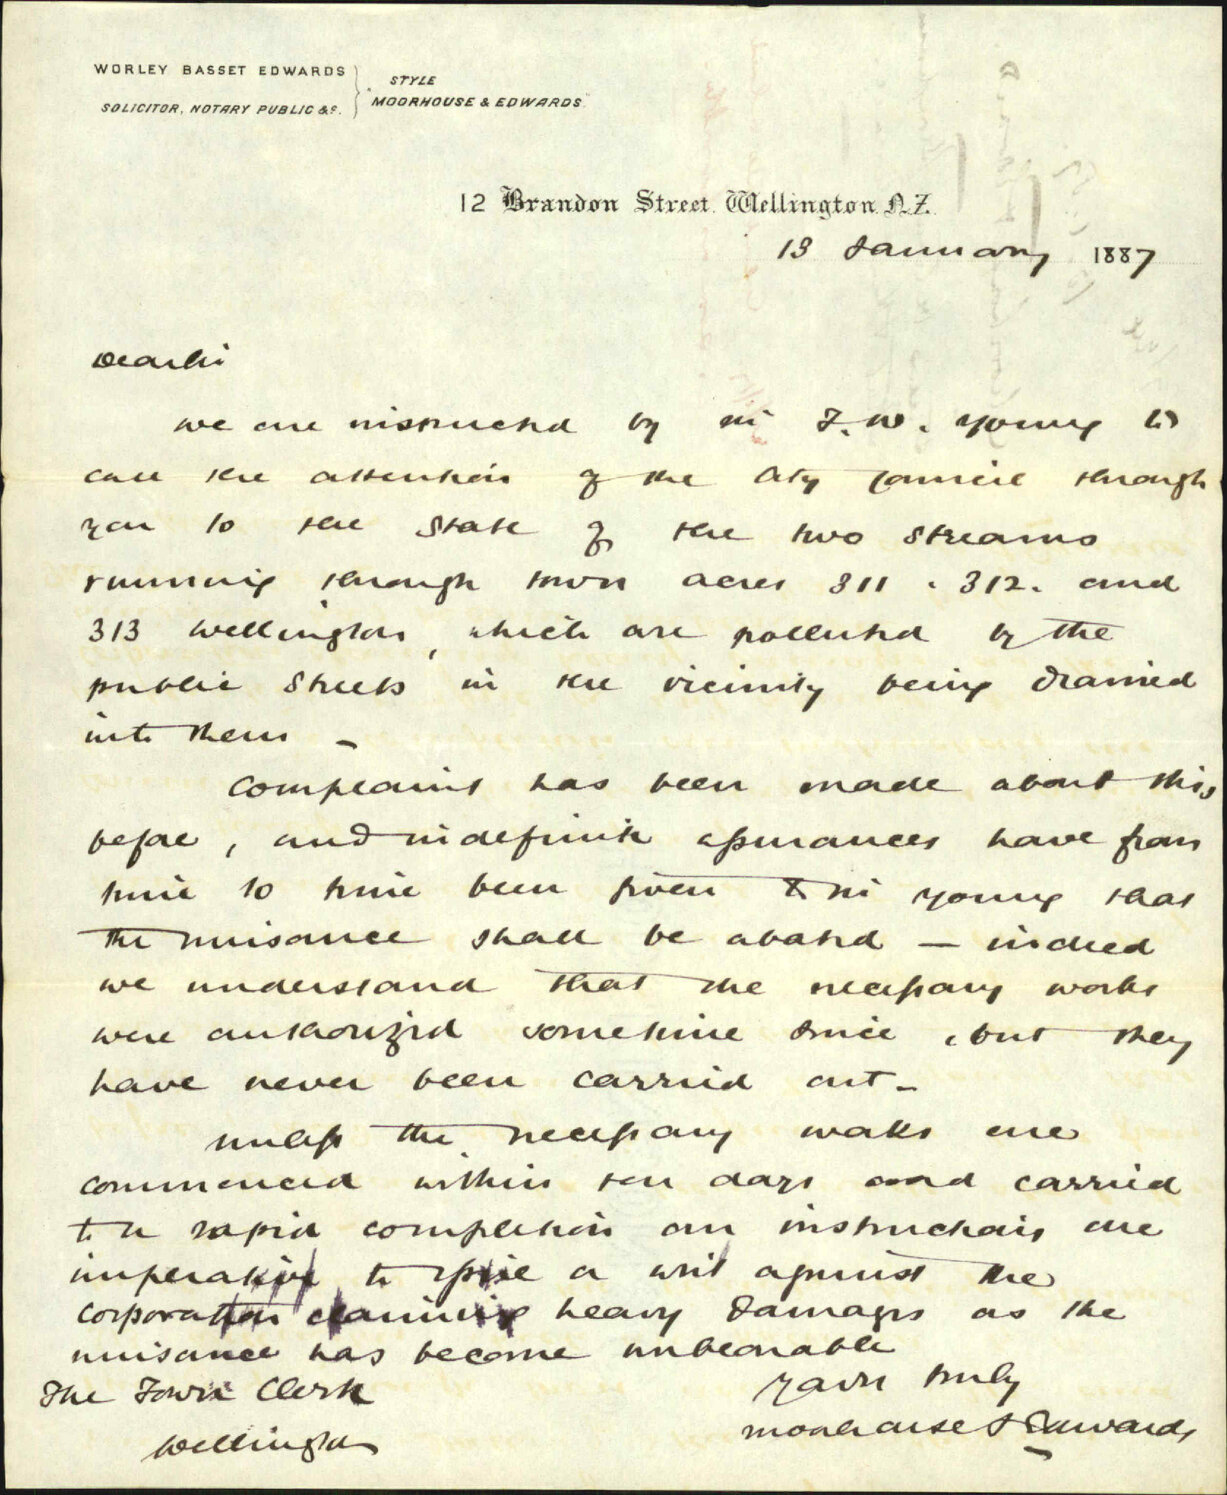 WORLEY BASSET EDWARDS
SOLICITOR, NOTARY PUBLIC &c.
STYLE
MOORHOUSE & EDWARDS
12 Brandon Street. Wellington N.Z.
13 January 1887
Dear Sir
We are instructed by Mr F.W. Young to
call the attention of the City Council through
you to the state of the two streams
running through town acres 311, 312, and
313 Wellington, which are polluted by the
public streets in the vicinity being drained
into them –
Complaint has been made about this
before, and indefinite assurances have from
time to time been given to Mr Young that
the nuisance shall be abated – indeed
we understand that the necessary works
were authorized sometime since, but they
have never been carried out –
Unless the necessary works are
commenced within ten days and carried
to a rapid completion our instructions are
imperative to issue a writ against the
corporation claiming heavy damages as the
nuisance has become unbearable
Yours truly
Moorhouse & Edwards
The Town Clerk
Wellington